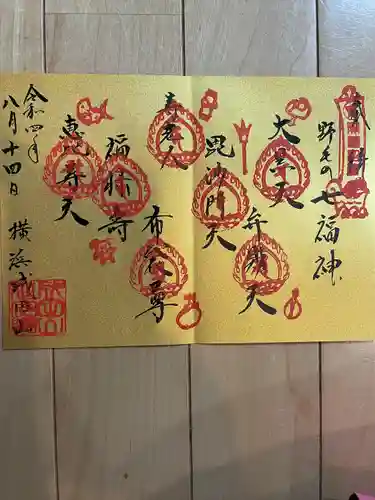 奉拝
野毛の七福神
大黒天
弁財天
毘沙門天
寿老人
布袋尊
福禄寿
恵比寿天
令和四年
八月十四日
横浜成田山